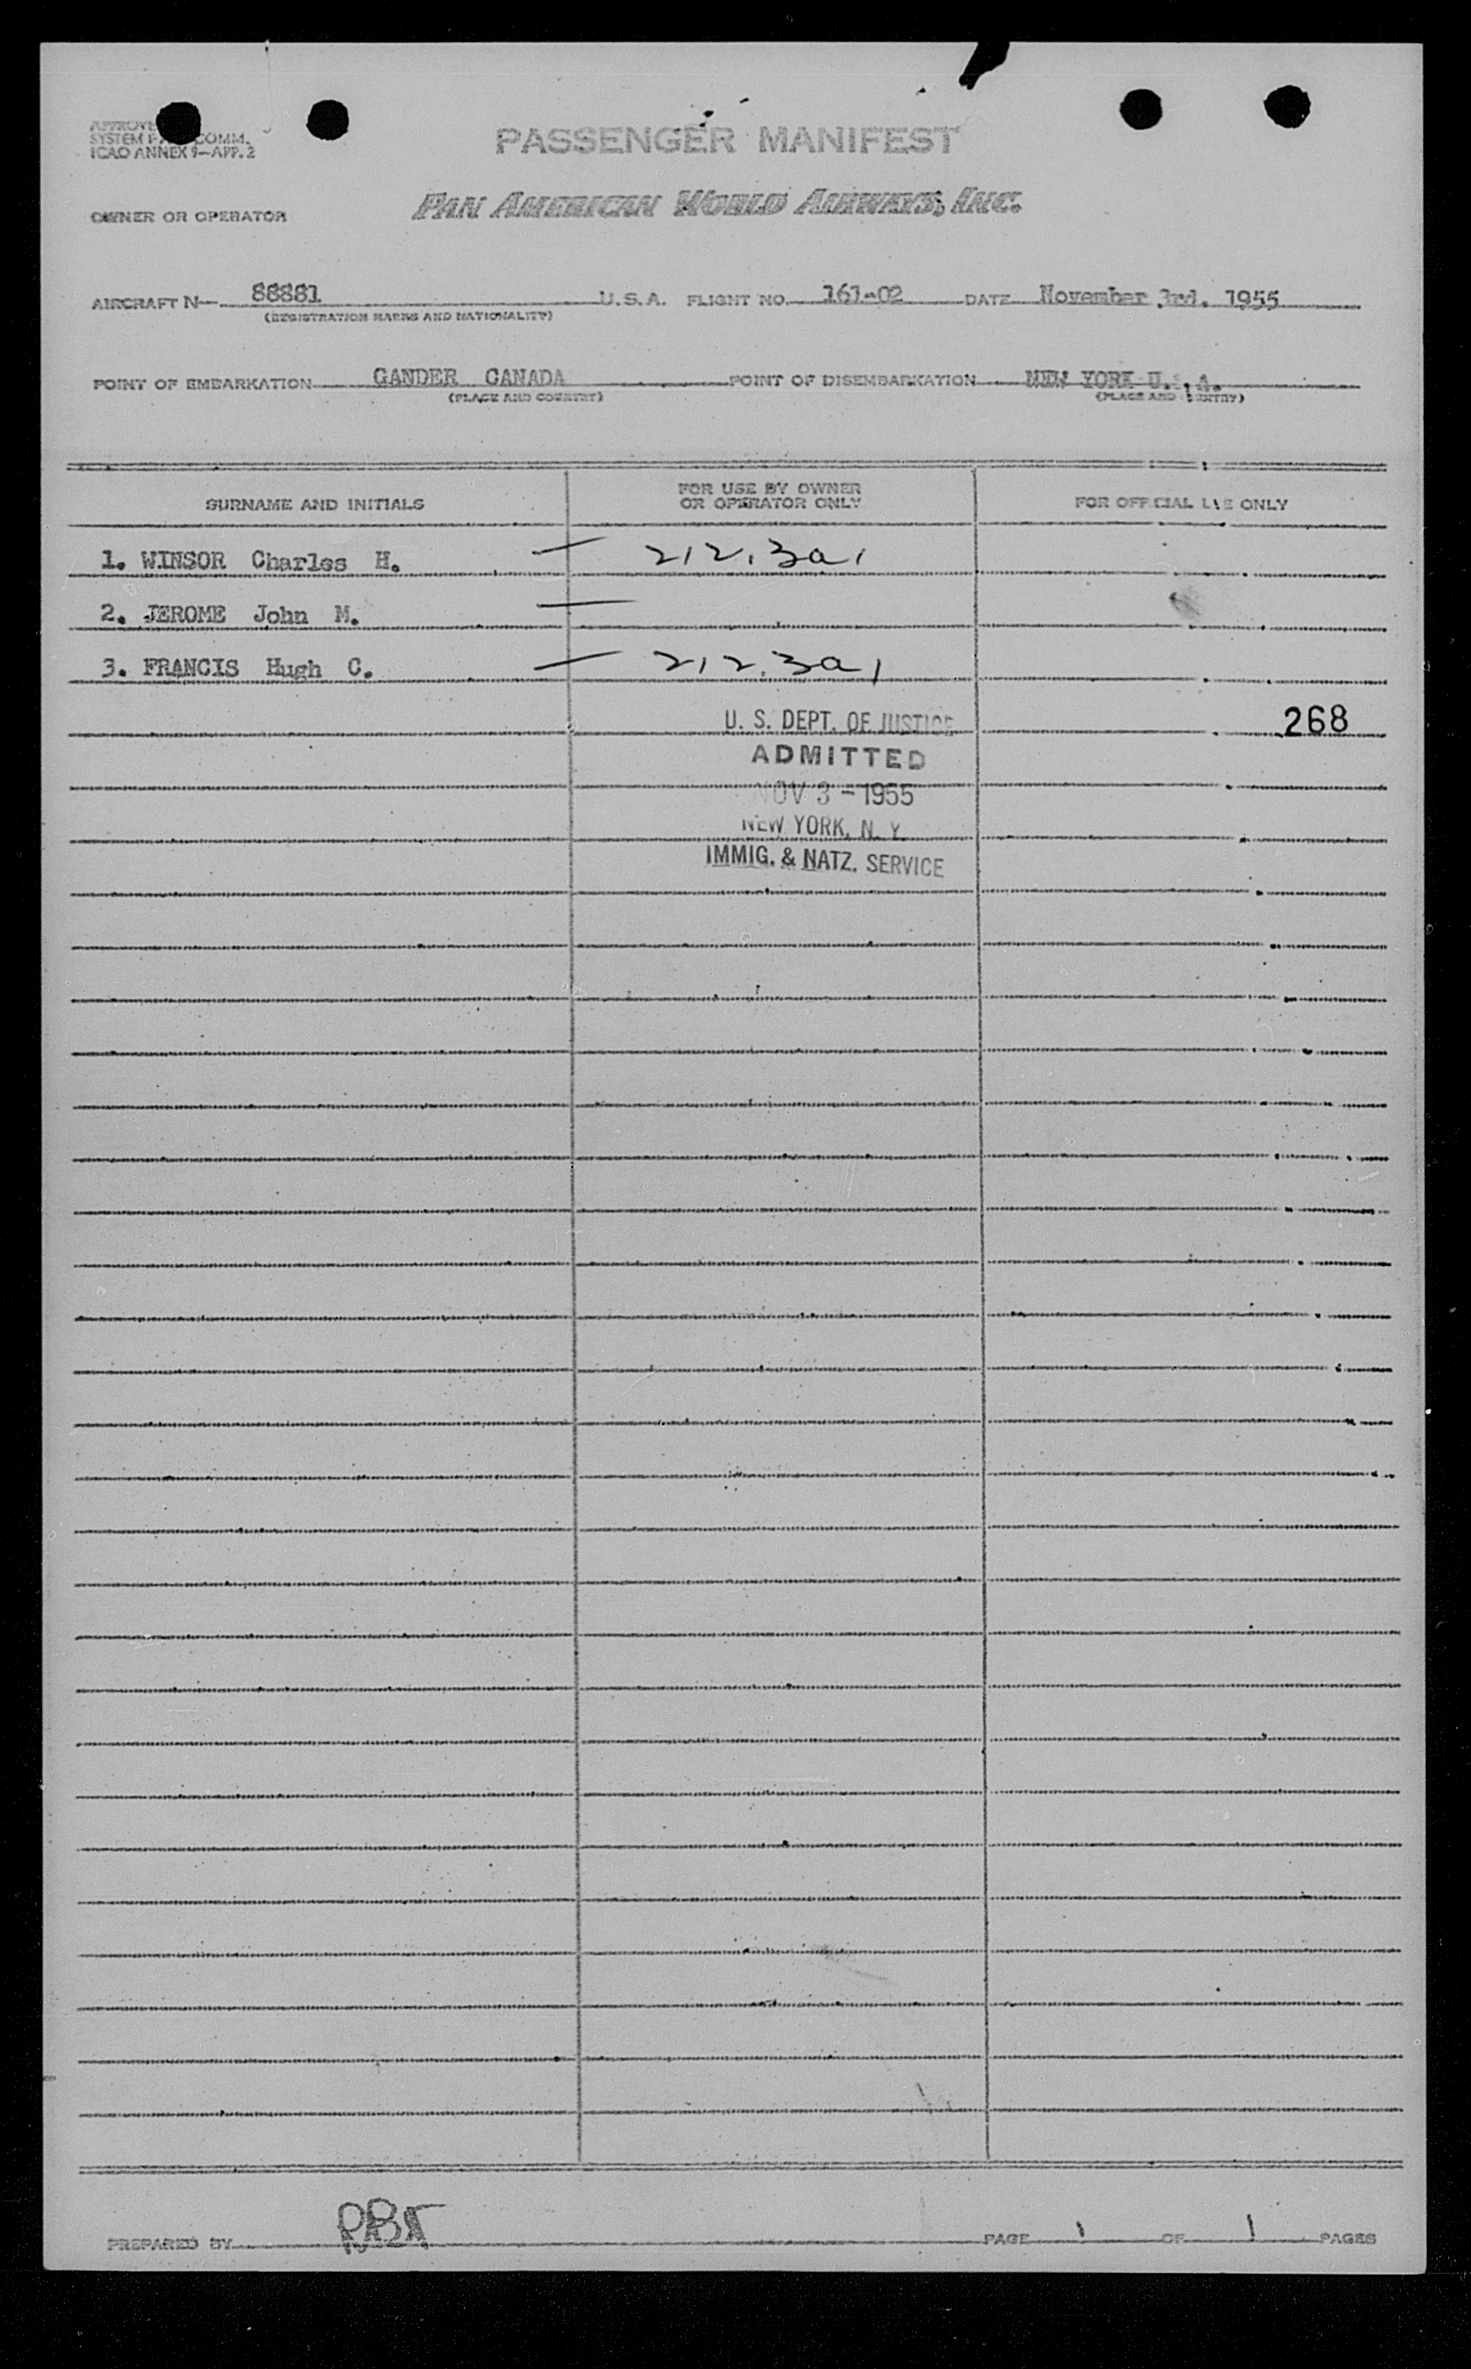 SYSTEM COMM.
ICAO ANNEX 9—APP. 2
PASSENGER MANIFEST
OWNER OR OPERATOR PAN AMERICAN WORLD AIRWAYS, INC.
AIRCRAFT N— 88881 U.S.A. FLIGHT NO. 161-02 DATE November 3rd. 1955
(REGISTRATION MARKS AND NATIONALITY)
POINT OF EMBARKATION GANDER CANADA POINT OF DISEMBARKATION NEW YORK U. A.
(PLACE AND COUNTRY) (PLACE AND COUNTRY)
SURNAME AND INITIALS FOR USE BY OWNER OR OPERATOR ONLY FOR OFFICIAL USE ONLY
1. WINSOR Charles H. — 212.3a1
2. JEROME John M. —
3. FRANCIS Hugh C. — 212.3a1
U. S. DEPT. OF JUSTICE 268
ADMITTED
NOV 3 - 1955
NEW YORK, N. Y.
IMMIG. & NATZ. SERVICE
PREPARED BY PAGE 1 OF 1 PAGES